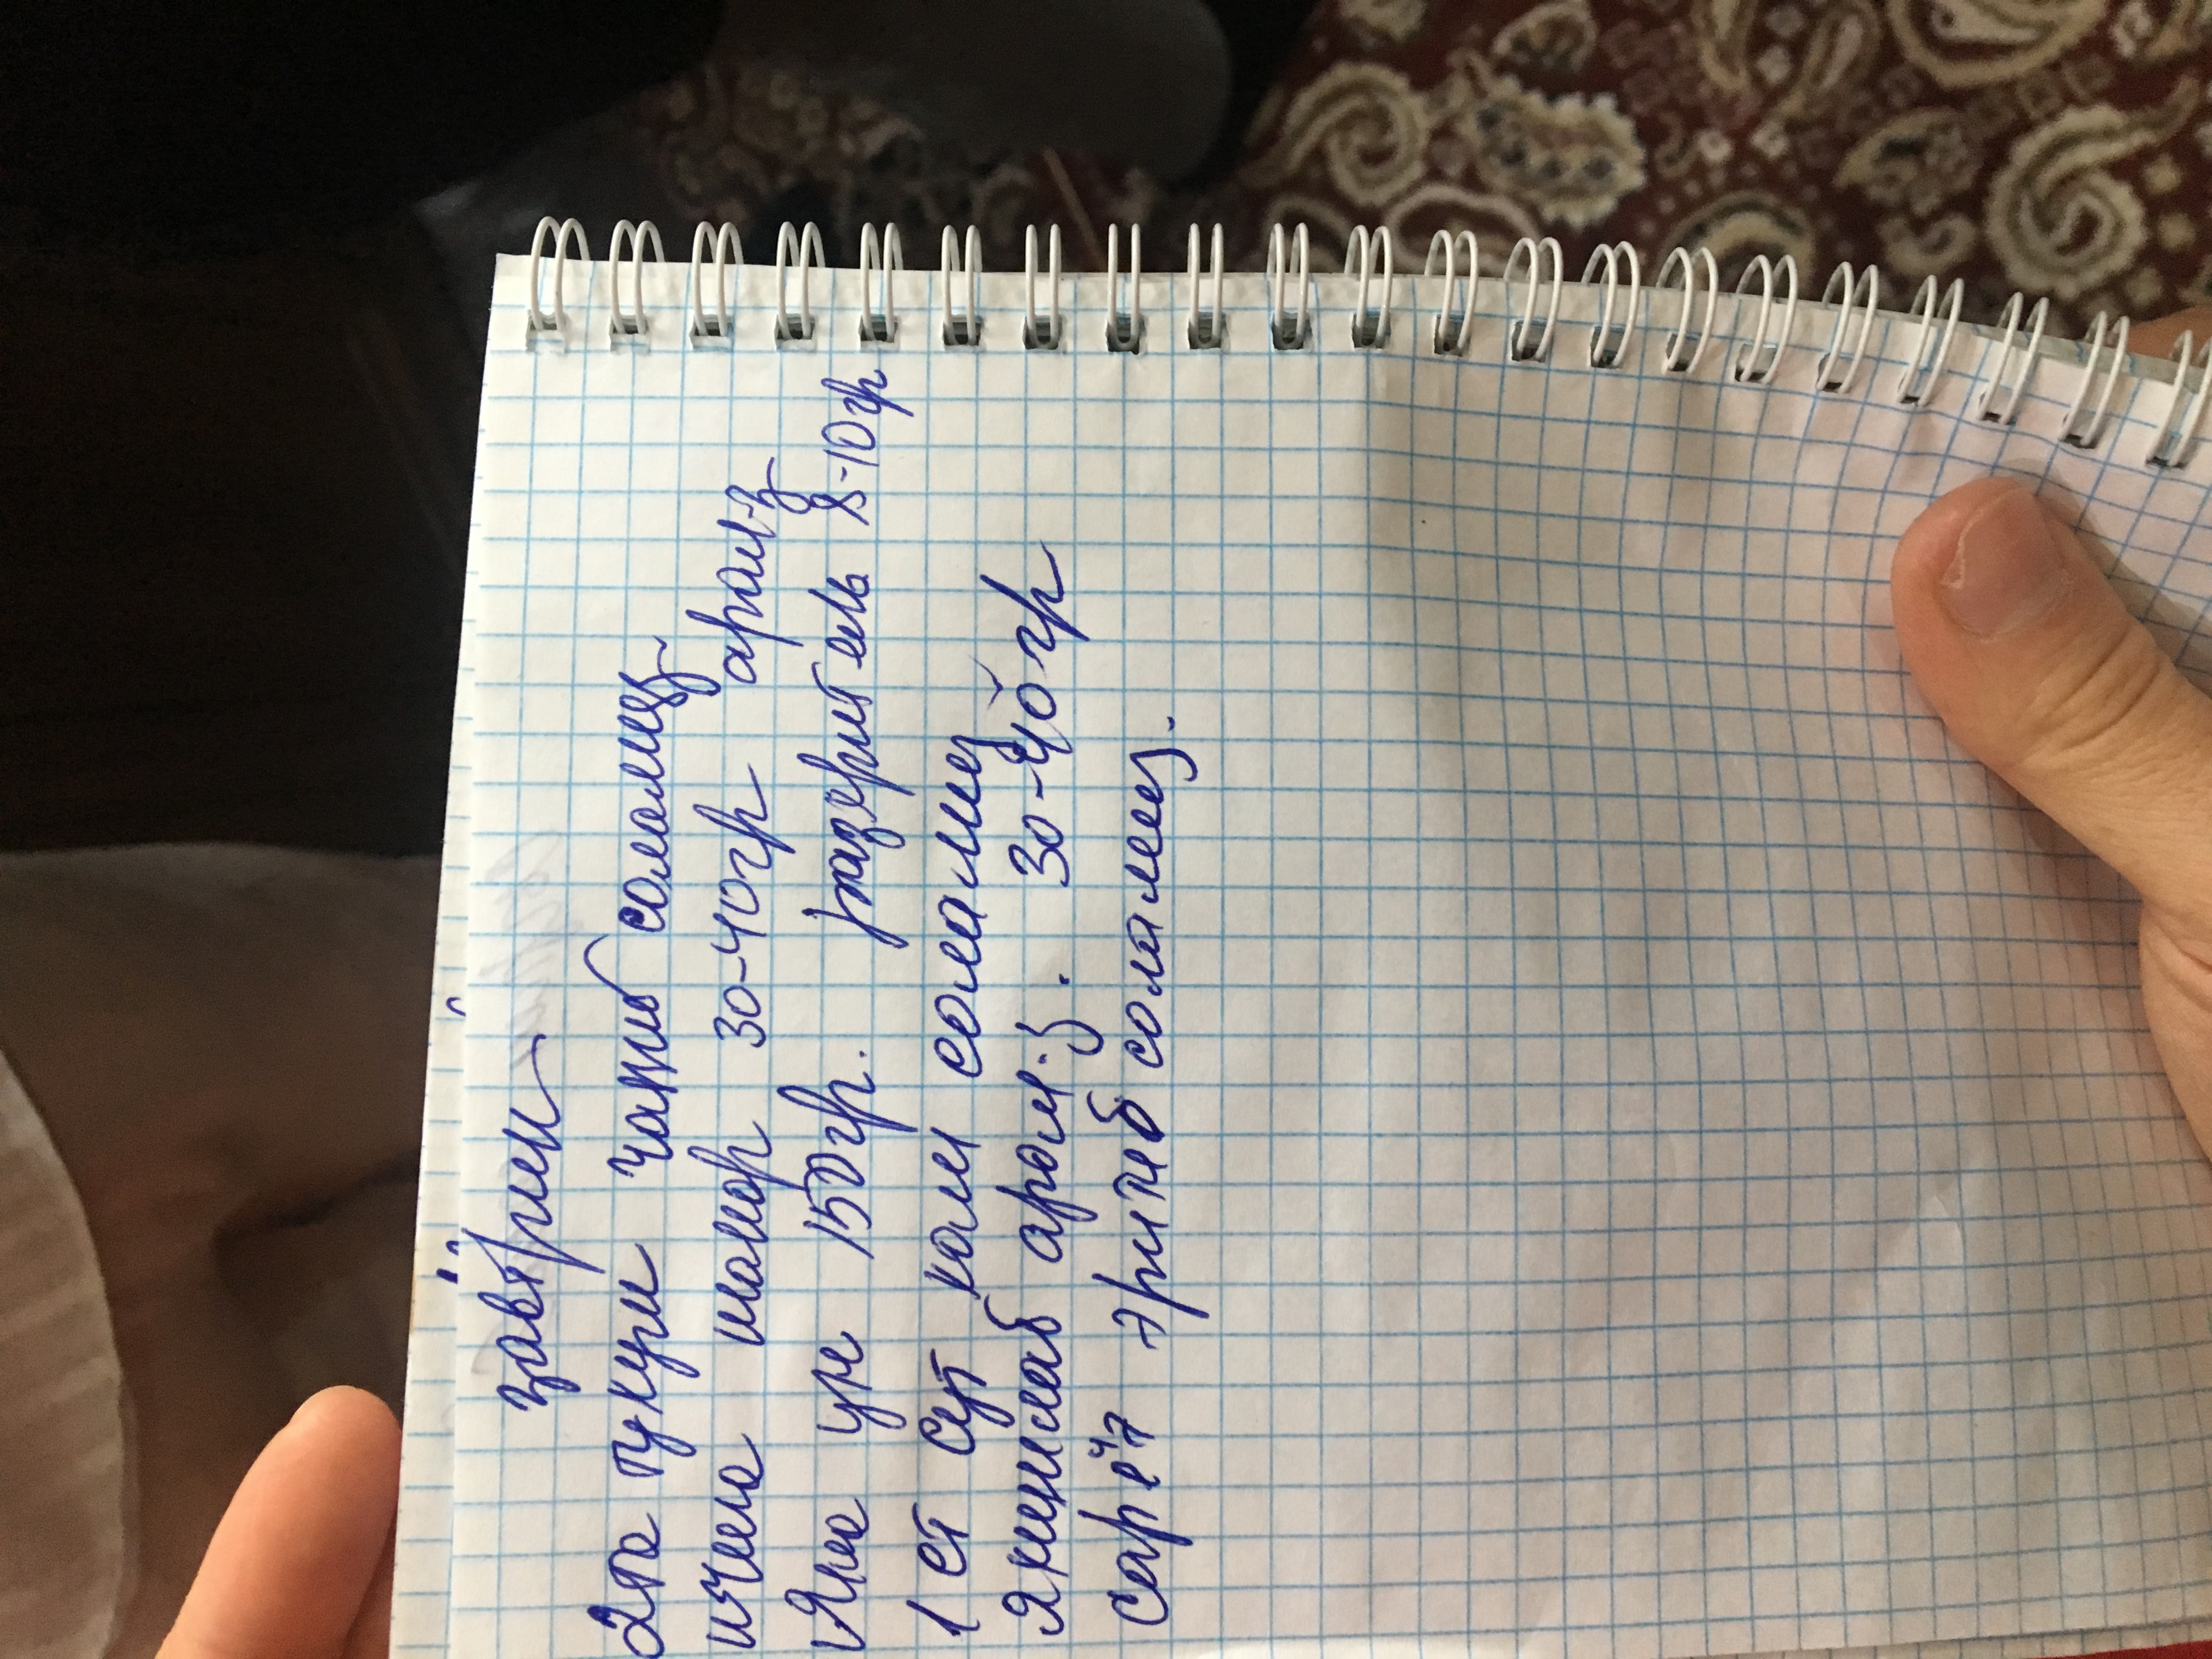 завтрик
2та тухум чакиб соламиз
ичига шакар 30-40гр арал-з
Яна ун 150гр. разеритель 8-10гр
1 ст сут хам соламиз
яхшилаб арал-з. 30-40 гр
сарёғ эритиб соламиз.